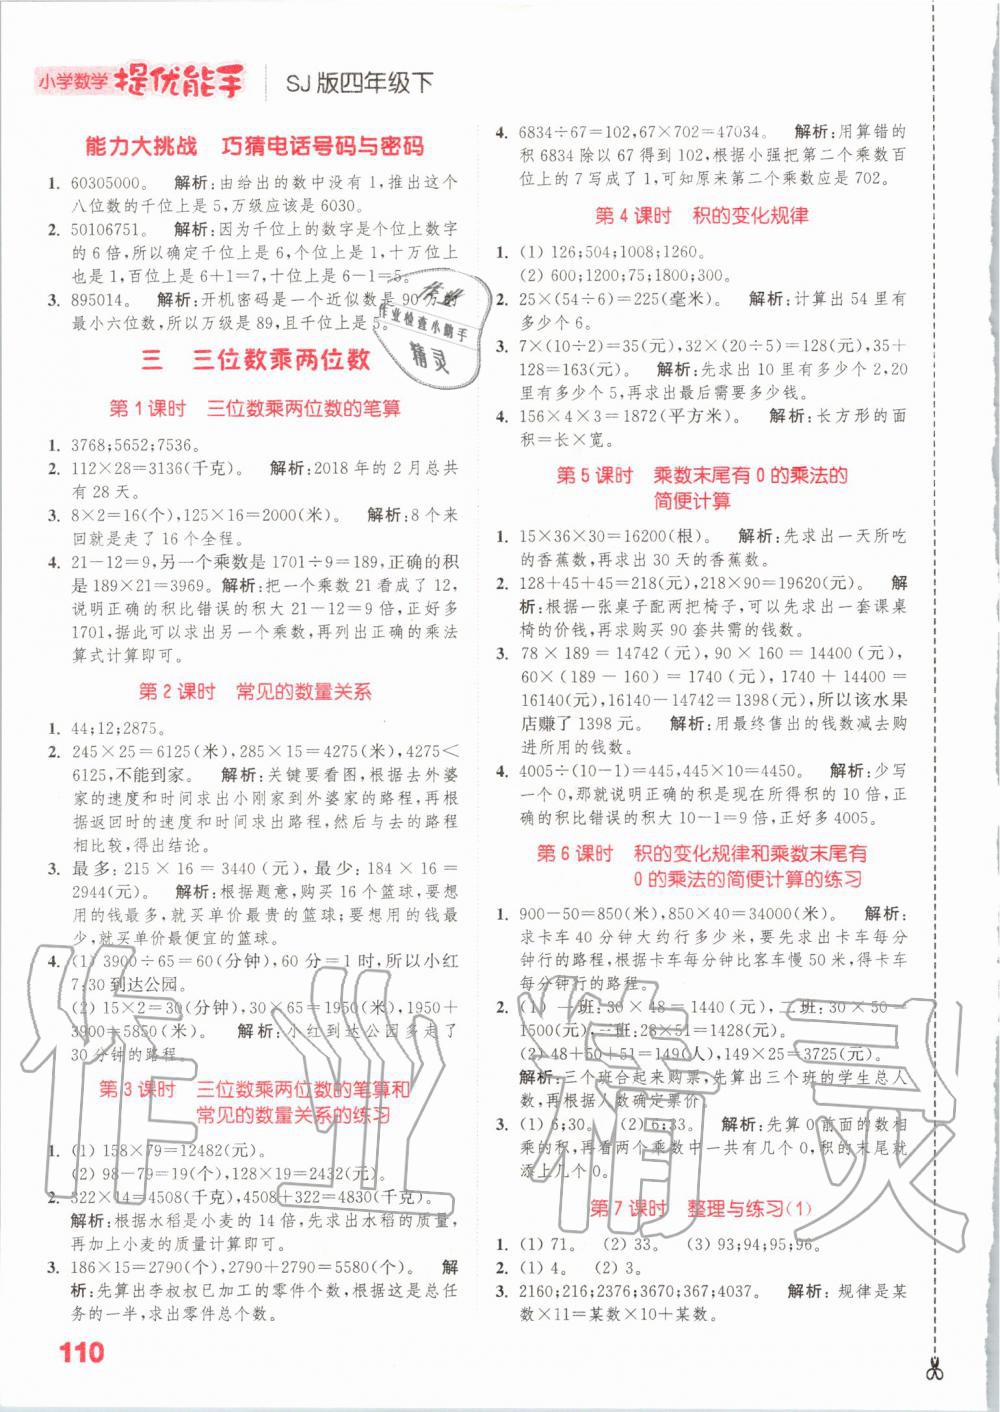 小学数学 提优能手 SJ版四年级下
能力大挑战 巧猜电话号码与密码
1. 60305000。 解析:由给出的数中没有1,推出这个
八位数的千位上是5,万级应该是6030。
2. 50106751。 解析:因为千位上的数字是个位上数字
的6倍,所以确定千位上是6,个位上是1,十万位上
也是1,百位上是6+1=7,十位上是6-1=5。
3. 895014。 解析:开机密码是一个近似数是90万的
最小六位数,所以万级是89,且千位上是5。
三 三位数乘两位数
第1课时 三位数乘两位数的笔算
1. 3768;5652;7536。
2. 112×28=3136(千克)。 解析:2018年的2月总共
有28天。
3. 8×2=16(个),125×16=2000(米)。 解析:8个来
回就是走了16个全程。
4. 21-12=9,另一个乘数是1701÷9=189,正确的积
是189×21=3969。 解析:把一个乘数21看成了12,
说明正确的积比错误的积大21-12=9倍,正好多
1701,据此可以求出另一个乘数,再列出正确的乘法
算式计算即可。
第2课时 常见的数量关系
1. 44;12;2875。
2. 245×25=6125(米),285×15=4275(米),4275<
6125,不能到家。 解析:关键要看图,根据去外婆
家的速度和时间求出小刚家到外婆家的路程,再根
据返回时的速度和时间求出路程,然后与去的路程
相比较,得出结论。
3. 最多:215×16=3440(元),最少:184×16=
2944(元)。 解析:根据题意,购买16个篮球,要想
用的钱最多,就买单价最贵的篮球;要想用的钱最
少,就买单价最便宜的篮球。
4. (1) 3900÷65=60(分钟),60分=1时,所以小红
7:30到达公园。
(2) 15×2=30(分钟),30×65=1950(米),1950+
3900=5850(米)。 解析:小红到达公园多走了
30分钟的路程。
第3课时 三位数乘两位数的笔算和
常见的数量关系的练习
1. (1) 158×79=12482(元)。
(2) 98-79=19(个),128×19=2432(元)。
2. 322×14=4508(千克),4508+322=4830(千克)。
解析:根据水稻是小麦的14倍,先求出水稻的质量,
再加上小麦的质量计算即可。
3. 186×15=2790(个),2790+2790=5580(个)。 解
析:先算出李叔叔已加工的零件个数,根据这是总任
务的一半,求出零件总个数。
110
4. 6834÷67=102,67×702=47034。 解析:用算错的
积6834除以67得到102,根据小强把第二个乘数百
位上的7写成了1,可知原来第二个乘数应是702。
第4课时 积的变化规律
1. (1) 126;504;1008;1260。
(2) 600;1200;75;1800;300。
2. 25×(54÷6)=225(毫米)。 解析:计算出54里有
多少个6。
3. 7×(10÷2)=35(元),32×(20÷5)=128(元),35+
128=163(元)。 解析:先求出10里有多少个2,20
里有多少个5,再求出最后需要多少钱。
4. 156×4×3=1872(平方米)。 解析:长方形的面
积=长×宽。
第5课时 乘数末尾有0的乘法的
简便计算
1. 15×36×30=16200(根)。 解析:先求出一天所吃
的香蕉数,再求出30天的香蕉数。
2. 128+45+45=218(元),218×90=19620(元)。 解
析:根据一张桌子配两把椅子,可以先求出一套课桌
椅的价钱,再求购买90套共需的钱数。
3. 78×189=14742(元),90×160=14400(元),
60×(189-160)=1740(元),1740+14400=
16140(元),16140-14742=1398(元),所以该水果
店赚了1398元。 解析:用最终售出的钱数减去购
进所用的钱数。
4. 4005÷(10-1)=445,445×10=4450。 解析:少写
一个0,那就说明正确的积是现在所得积的10倍,正
确的积比错误的积大10-1=9倍,正好多4005。
第6课时 积的变化规律和乘数末尾有
0的乘法的简便计算的练习
1. 900-50=850(米),850×40=34000(米)。 解析:
求卡车40分钟大约行多少米,要先求出卡车每分
钟行的路程,根据卡车每分钟比客车慢50米,得卡车
每分钟行的路程。
2. (1) 一班:30×48=1440(元),二班:30×50=
1500(元),三班:28×51=1428(元)。
(2) 48+50+51=149(人),149×25=3725(元)。
解析:三个班合起来购票,先算出三个班的学生总人
数,再根据人数确定票价。
3. (1) 6;30。 (2) 6;33。 解析:先算0前面的数相
乘的积,再看两个乘数中一共有几个0,积的末尾就
添上几个0。
第7课时 整理与练习(1)
1. (1) 71。 (2) 33。 (3) 93;94;95;96。
2. (1) 4。 (2) 3。
3. 2160;216;2376;3670;367;4037。 解析:规律是某
数×11=某数×10+某数。
作业
作业检查小助手
精灵
作业精灵